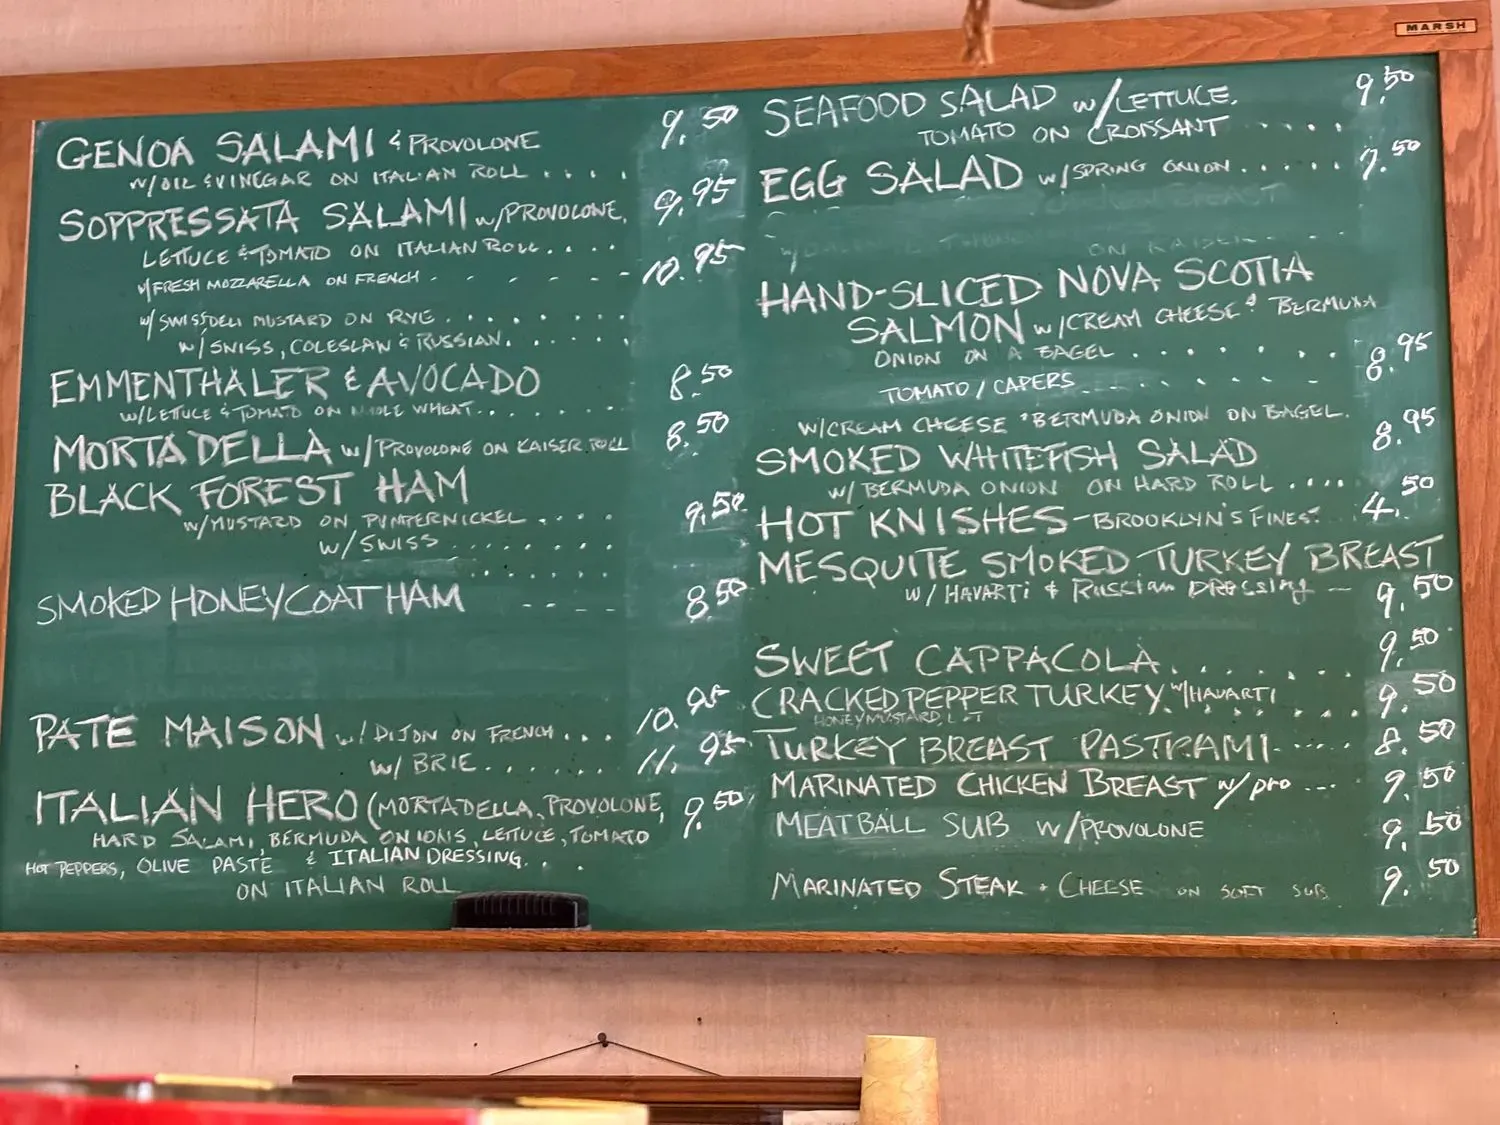 MARSH
GENOA SALAMI & PROVOLONE 9.50
W/OIL & VINEGAR ON ITALIAN ROLL ....
SOPPRESSATA SALAMI W/PROVOLONE, 9.95
LETTUCE & TOMATO ON ITALIAN ROLL....
W/FRESH MOZZARELLA ON FRENCH - - - - - 10.95
W/SWISS DELI MUSTARD ON RYE . . . . . . .
W/SWISS, COLESLAW & RUSSIAN......
EMMENTHALER & AVOCADO 8.50
W/LETTUCE & TOMATO ON WHOLE WHEAT.......
MORTADELLA W/PROVOLONE ON KAISER ROLL 8.50
BLACK FOREST HAM
W/MUSTARD ON PUMPERNICKEL .... 9.50
W/SWISS .......
SMOKED HONEYCOAT HAM ---- 8.50
PATE MAISON W/ DIJON ON FRENCH... 10.95
W/ BRIE...... 11.95
ITALIAN HERO (MORTADELLA, PROVOLONE, 9.50
HARD SALAMI, BERMUDA ONIONS, LETTUCE, TOMATO
HOT PEPPERS, OLIVE PASTE & ITALIAN DRESSING...
ON ITALIAN ROLL
SEAFOOD SALAD W/LETTUCE, 9.50
TOMATO ON CROISSANT ....
EGG SALAD W/SPRING ONION...... 7.50
BREAST
ON KAISER
HAND-SLICED NOVA SCOTIA
SALMON W/CREAM CHEESE & BERMUDA
ONION ON A BAGEL ....... 8.95
TOMATO / CAPERS .......
W/CREAM CHEESE & BERMUDA ONION ON BAGEL.
SMOKED WHITEFISH SALAD 8.95
W/ BERMUDA ONION ON HARD ROLL ....
HOT KNISHES - BROOKLYN'S FINEST 4.50
MESQUITE SMOKED TURKEY BREAST
W/ HAVARTI & RUSSIAN DRESSING -- 9.50
SWEET CAPPACOLA....... 9.50
CRACKED PEPPER TURKEY W/HAVARTI 9.50
HONEY MUSTARD, L + T
TURKEY BREAST PASTRAMI..... 8.50
MARINATED CHICKEN BREAST W/pro --- 9.50
MEATBALL SUB W/PROVOLONE 9.50
MARINATED STEAK + CHEESE ON SOFT SUB 9.50